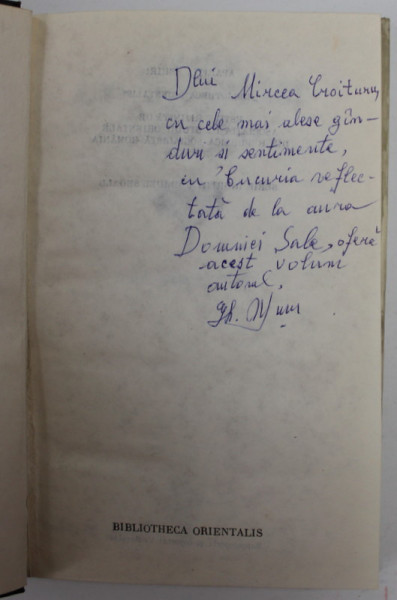 Dlui Mircea Croitoru,
cu cele mai alese gîn-
duri si sentimente,
cu bucuria reflec-
tată de la aura
Domniei Sale, oferă
acest volum
autorul,
Gh.
BIBLIOTHECA ORIENTALIS